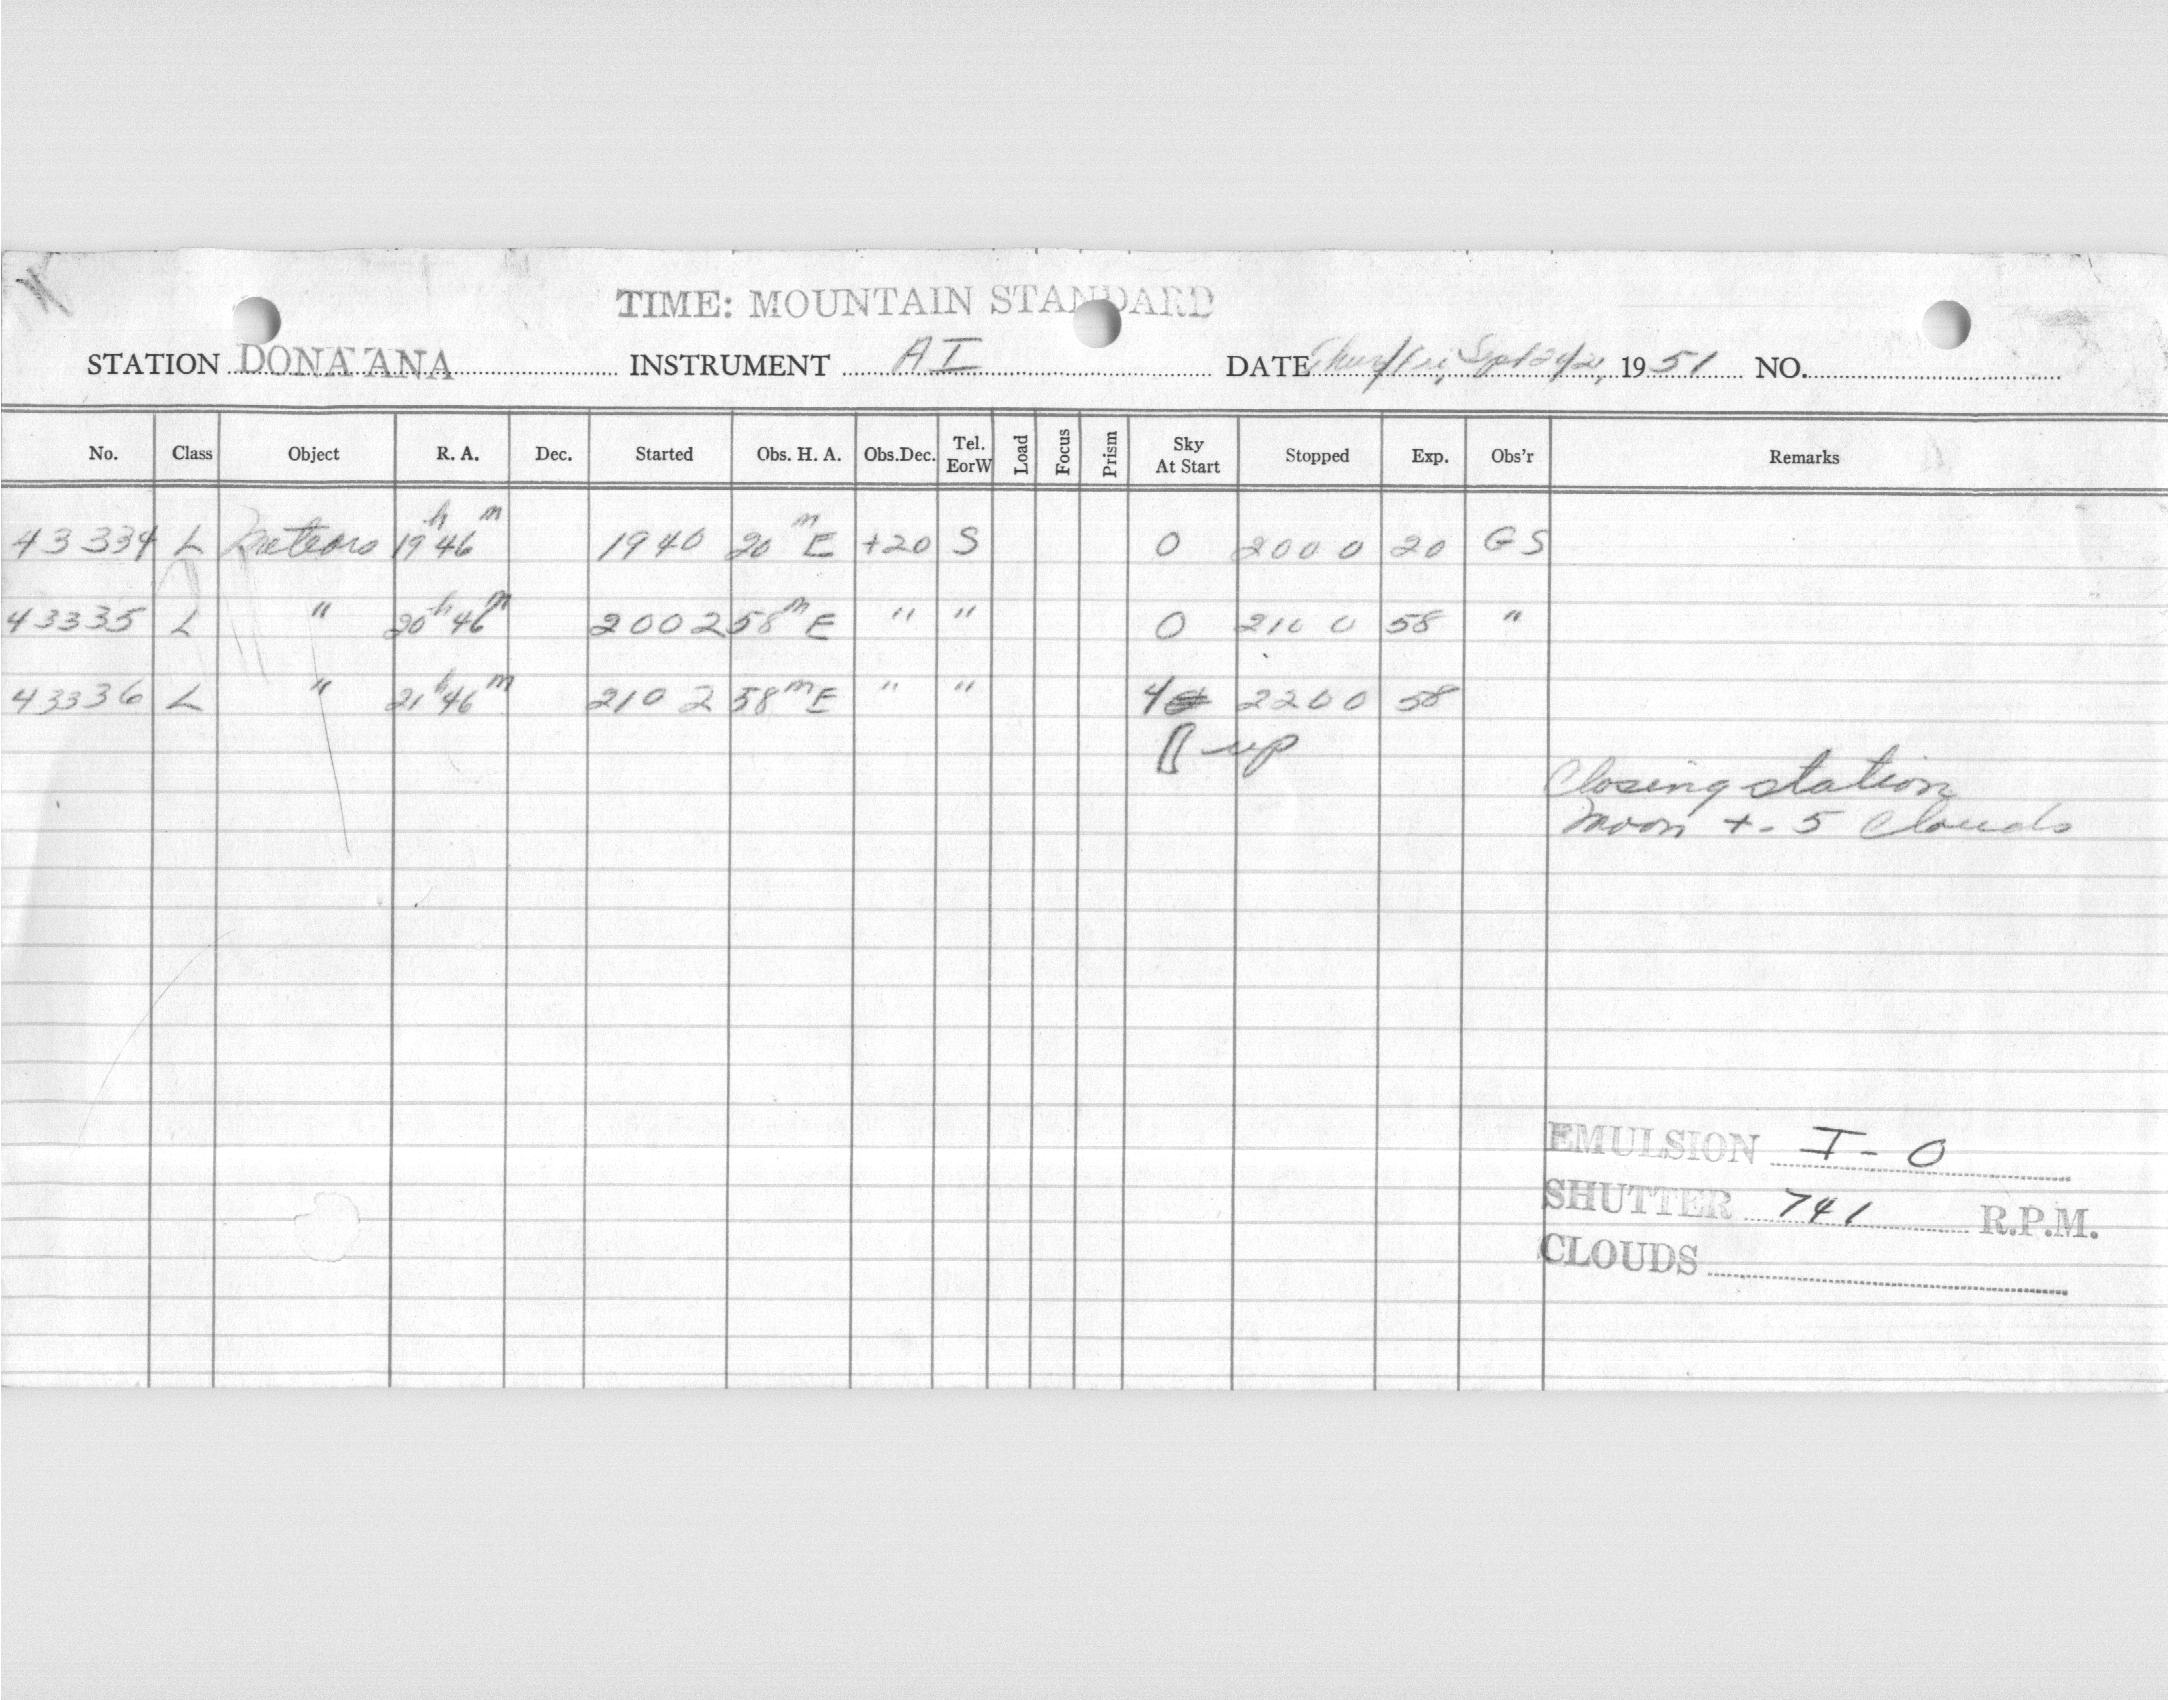 TIME: MOUNTAIN STANDARD
STATION DONA ANA INSTRUMENT AI DATE Thur/Fri, Sept 20/21, 1951 NO.
No. Class Object R. A. Dec. Started Obs. H. A. Obs.Dec. Tel. EorW Load Focus Prism Sky At Start Stopped Exp. Obs'r Remarks
43334 L Meteors 19h 46m 1940 20m E +20 S 0 2000 20 GS
43335 L " 20h 46m 2002 58m E " " 0 2100 58 "
43336 L " 21h 46m 2102 58m E " " 4 2200 58
up
Closing station
Moon +. 5 Clouds
EMULSION I-O
SHUTTER 741 R.P.M.
CLOUDS